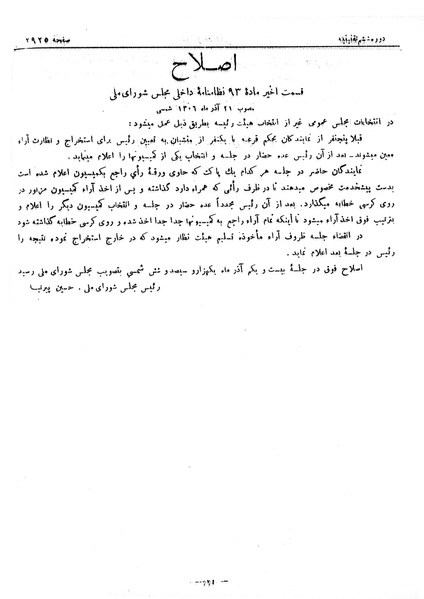 دوره ششم تقنینیه
صفحه ۲۹۲۵
اصلاح
قسمت اخیر مادهٔ ۹۳ نظامنامهٔ داخلی مجلس شورای ملی
مصوب ۲۱ آذر ماه ۱۳۰۶ شمسی
در انتخابات مجلس عمومی غیر از انتخاب هیئت رئیسه بطریق ذیل عمل میشود :
قبلا پنجنفر از نمایندگان بحکم قرعه با یکنفر از منشیان به تعیین رئیس برای استخراج و نظارت آراء
معین میشوند - بعد از آن رئیس عده حضار در جلسه و انتخاب یکی از کمیسیونها را اعلام مینماید .
نمایندگان حاضر در جلسه هر کدام یك پاکت که حاوی ورقهٔ رأی راجع بکمیسیون اعلام شده است
بدست پیشخدمت مخصوص میدهند تا در ظرف رأئی که همراه دارد گذاشته و پس از اخذ آراء کمیسیون مزبور در
روی کرسی خطابه میگذارد . بعد از آن رئیس مجدداً عده حضار در جلسه و انتخاب کمیسیون دیگر را اعلام و
بترتیب فوق اخذ آراء میشود تا اینکه تمام آراء راجع به کمیسیونها جدا جدا اخذ شده و روی کرسی خطابه گذاشته شود
در انقضاء جلسه ظروف آراء مأخوذه تسلیم هیئت نظار میشود که در خارج استخراج نموده نتیجه را
رئیس در جلسهٔ بعد اعلام نماید .
اصلاح فوق در جلسهٔ بیست و یکم آذر ماه یکهزار و سیصد و شش شمسی بتصویب مجلس شورای ملی رسید
رئیس مجلس شورای ملی . حسین پیرنیا